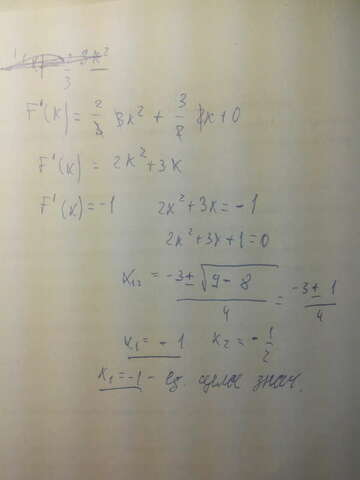 F'(x) = 2/3 3x² + 3/2 2x + 0
F'(x) = 2x² + 3x
F'(x) = -1 2x² + 3x = -1
2x² + 3x + 1 = 0
x₁₂ = -3 ± √9 - 8 / 4 = -3 ± 1 / 4
x₁ = -1 x₂ = -1/2
x₁ = -1 - ед. целое знач.